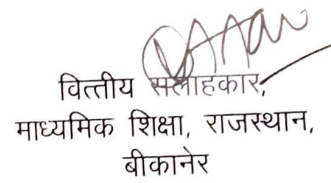 वित्तीय सलाहकार,
माध्यमिक शिक्षा, राजस्थान,
बीकानेर